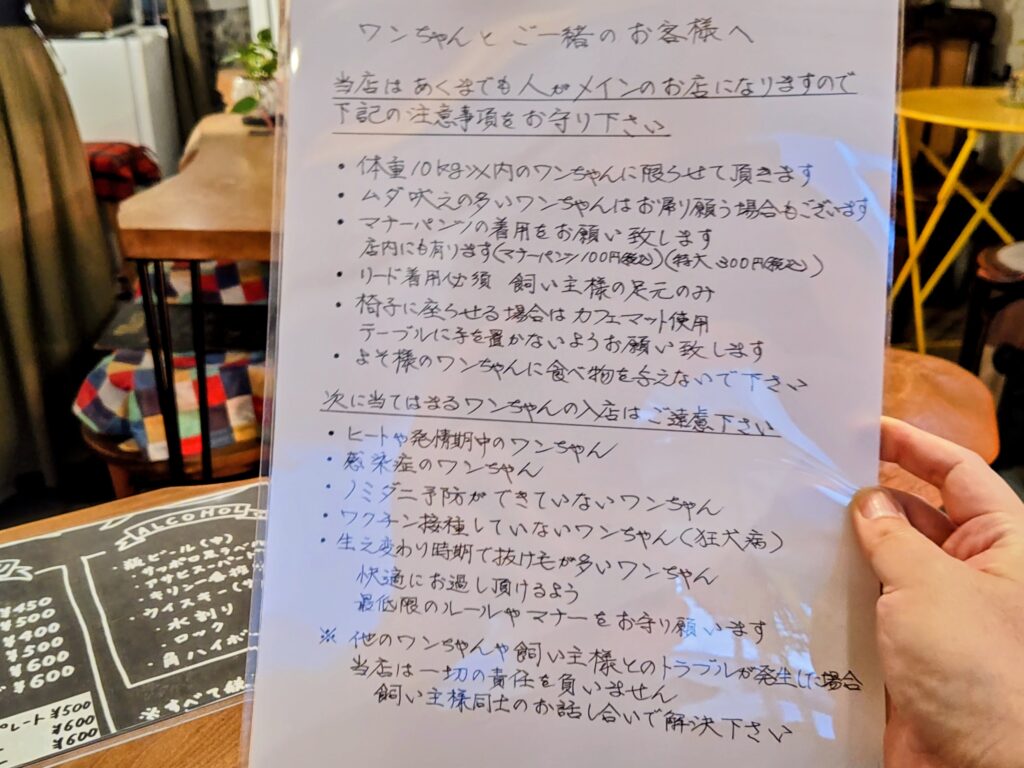 ワンちゃんとご一緒のお客様へ
当店はあくまでも人がメインのお店になりますので
下記の注意事項をお守り下さい
・体重10kg以内のワンちゃんに限らせて頂きます
・ムダ吠えの多いワンちゃんはお帰り願う場合もございます
・マナーパンツの着用をお願い致します
店内にも有ります(マナーパンツ100円(税込))(特大300円(税込))
・リード着用必須 飼い主様の足元のみ
・椅子に座らせる場合はカフェマット使用
テーブルに手を置かないようお願い致します
・よそ様のワンちゃんに食べ物を与えないで下さい
次に当てはまるワンちゃんの入店はご遠慮下さい
・ヒートや発情期中のワンちゃん
・感染症のワンちゃん
・ノミダニ予防ができていないワンちゃん
・ワクチン接種していないワンちゃん(狂犬病)
・生え変わり時期で抜け毛が多いワンちゃん
快適にお過し頂けるよう
最低限のルールやマナーをお守り願います
※ 他のワンちゃんや飼い主様とのトラブルが発生した場合
当店は一切の責任を負いません
飼い主様同士のお話し合いで解決下さい
ALCOHOL
瓶ビール(中)
・サッポロ
・アサヒスーパー
・キリン一番搾
・ウイスキー
・水割り
・ロック
・角ハイボ
※すべて
¥450
¥500
¥400
¥500
¥600
¥600
プレート ¥500
¥600
¥600